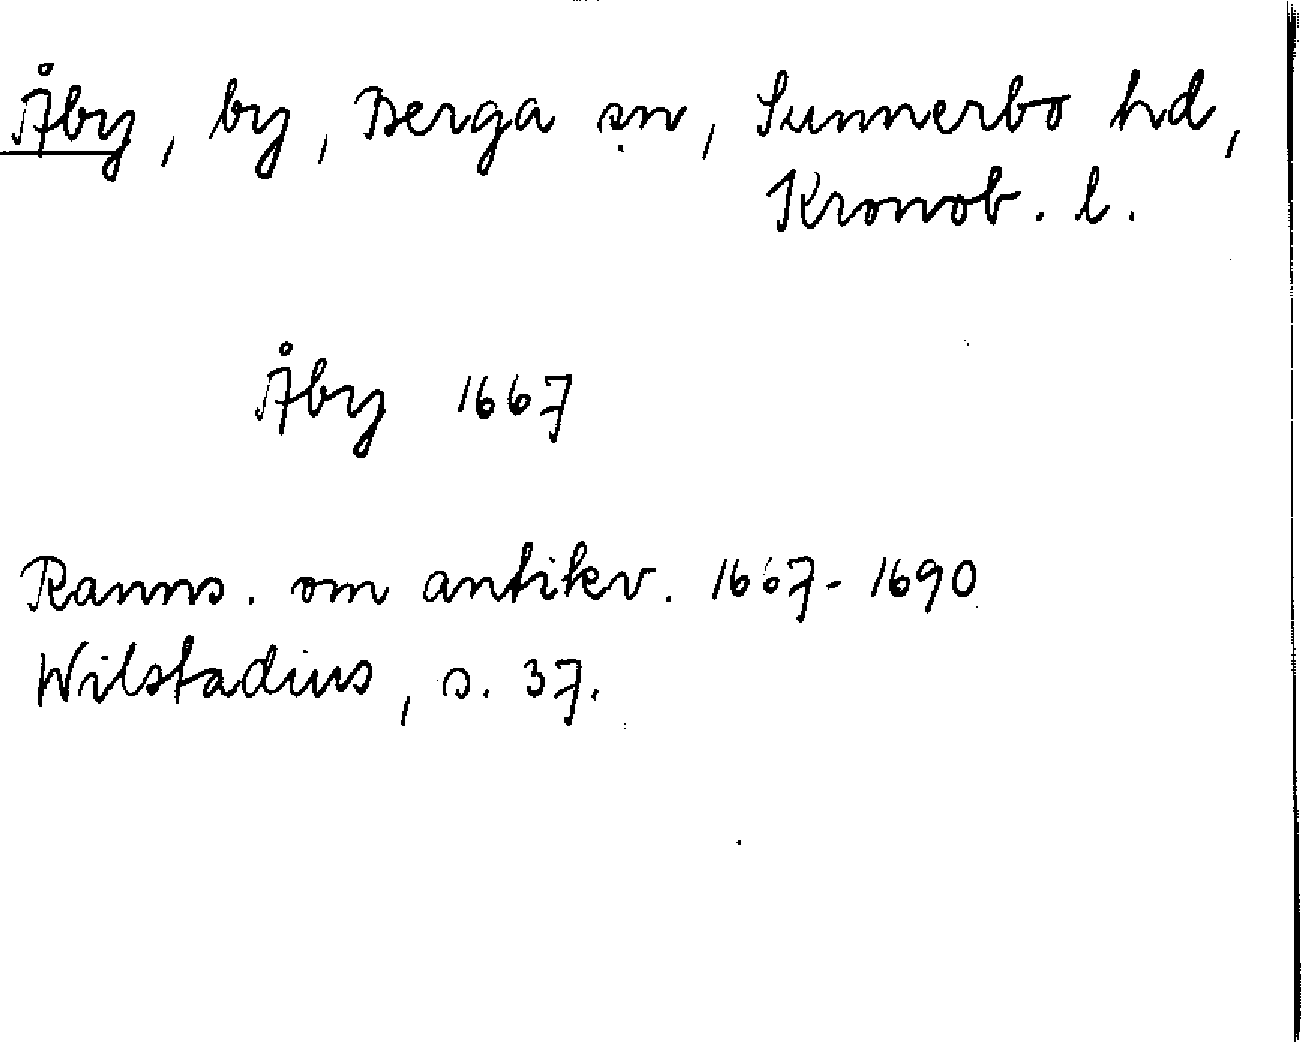 Åby, by, Berga sn, Sunnerbo hd,
Kronob. l.
Åby 1667
Ranns. om antikv. 1667-1690
Wilstadius, s. 37.